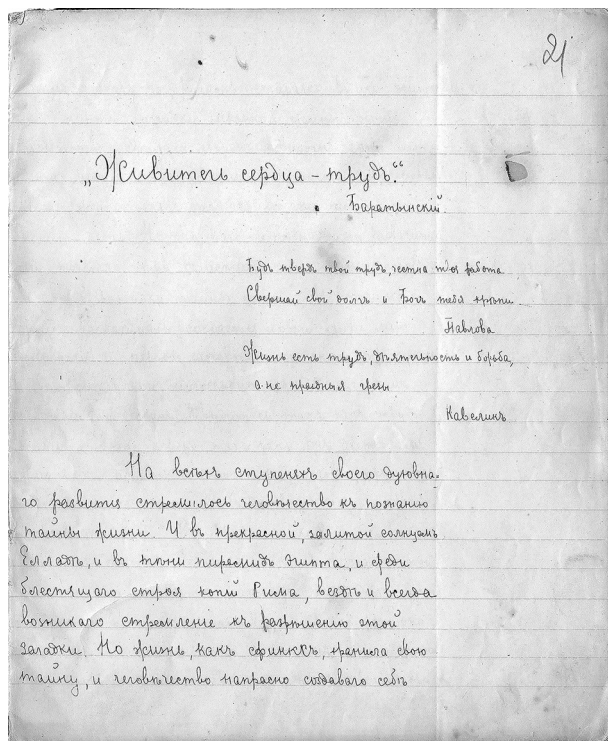 21
„Живитель сердца – трудъ.“
Баратынскій.
Будь твердъ твой трудъ, честна твоя работа
Свершай свой долгъ и Богъ тебя крѣпи
Павлова
Жизнь есть трудъ, дѣятельность и борьба,
а не праздныя грезы
Кавелинъ
На всѣхъ ступеняхъ своего духовна-
го развитія стремилось человѣчество къ познанію
тайны жизни. И въ прекрасной, залитой солнцемъ
Елладѣ, и въ тѣни пирамидъ Египта, и среди
блестящаго строя копій Рима, вездѣ и всегда
возникало стремленіе къ разрѣшенію этой
загадки. Но жизнь, какъ сфинксъ, хранила свою
тайну, и человѣчество напрасно создавало себѣ